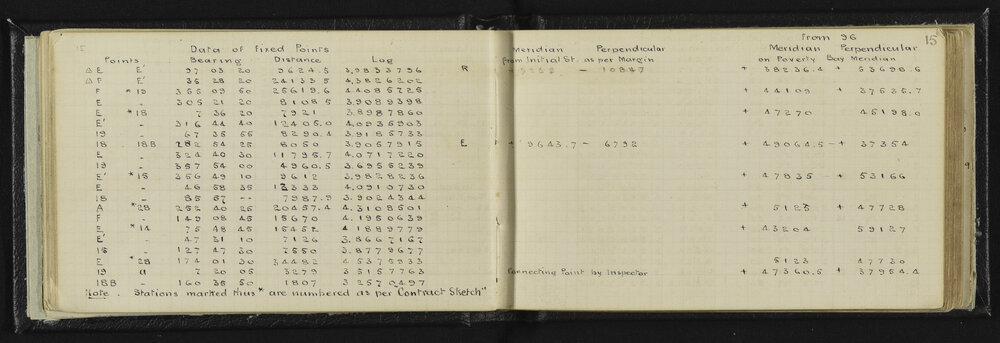 from 96 15
15 Data of Fixed Points Meridian Perpendicular Meridian Perpendicular
Points Bearing Distance Log from Initial St. as per Margin on Poverty Bay Meridian
△ E E' 97 03 20 9624.5 3.9833796 R 10847 + 38236.4 + 53698.6
△ F E' 35 28 20 24133.5 4.3826202
F *19 355 09 50 25619.6 4.4085725 + 44109 + 37535.7
E „ 305 21 20 8108.5 3.9089398
E *18 7 36 20 7921 3.8987860 + 47270 45198.0
E' „ 316 44 40 12405.0 4.0935903
19 „ 67 35 55 8290.4 3.9185733
18 18B 282 54 25 8050 3.9057915 E + 9643.7 - 6792 + 49064.5 + 37354
E „ 324 40 30 11795.7 4.0717220
19 „ 357 54 00 4960.5 3.6955239
E' *15 356 49 10 9612 3.9828236 + 47835 + 53166
E „ 46 58 35 12333 4.0910730
18 „ 85 57 -- 7987.9 3.9024344
A *28 252 40 25 20457.4 4.3108501 5123 + 47728
F „ 149 08 45 15670 4.1950639
E *14 75 48 45 15452 4.1889779 + 43204 59127
E' „ 47 31 10 7126 3.8667167
15 „ 127 47 30 7550 3.8779677
E *28 174 01 30 34482 4.5375933 5123 47730
19 a 7 20 05 3279 3.5157763 Connecting Point by Inspector + 47360.5 + 37954.4
18B „ 160 35 50 1807 3.2570497
Note. Stations marked thus * are numbered as per "Contract Sketch"